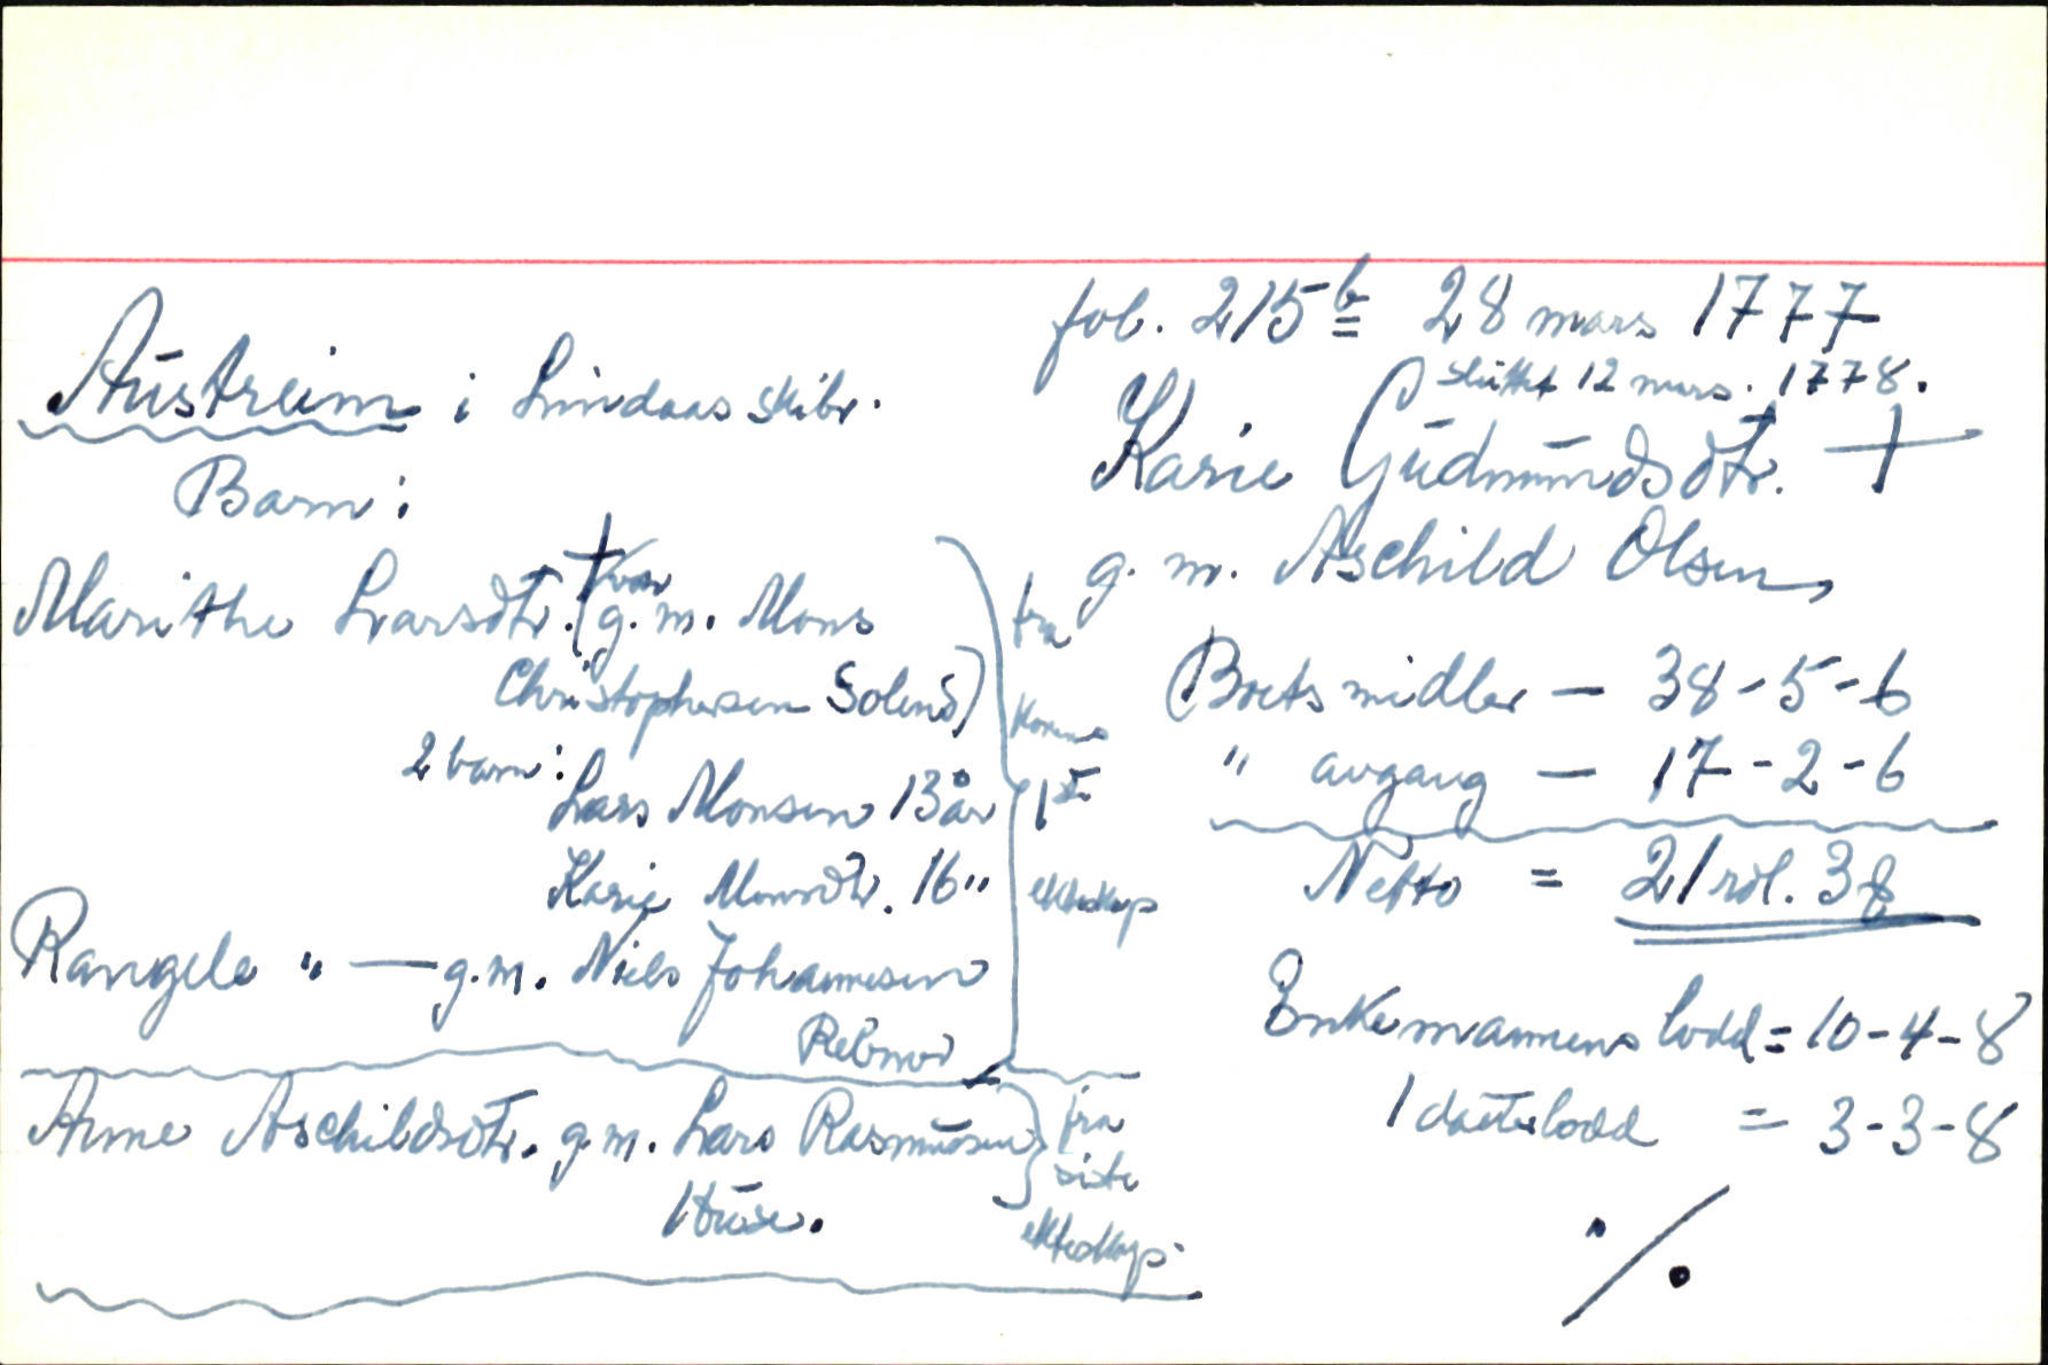 fol. 215 b 28 mars 1777
sluttet 12 mars. 1778.
Austreim i Lindaas skibr.
Karie Gudmundsdtr. +
g. m. Aschild Olsen,
Barn:
Marithe Larsdtr. † (var g. m. Mons
Christophersen Solend)
2 barn:
Lars Monsen 13 år
Karie Monsdtr. 16 "
Rangele " — g. m. Niels Johannesen
fra
Konens
1ste
ekteskap
Anne Aschildsdtr. g m. Lars Rasmusen
fra
siste
ekteskap.
Boets midler — 38-5-6
" avgang — 17-2-6
Netto = 21 rdl. 3 ß
Enkemannens lodd = 10-4-8
1 datterlodd = 3-3-8